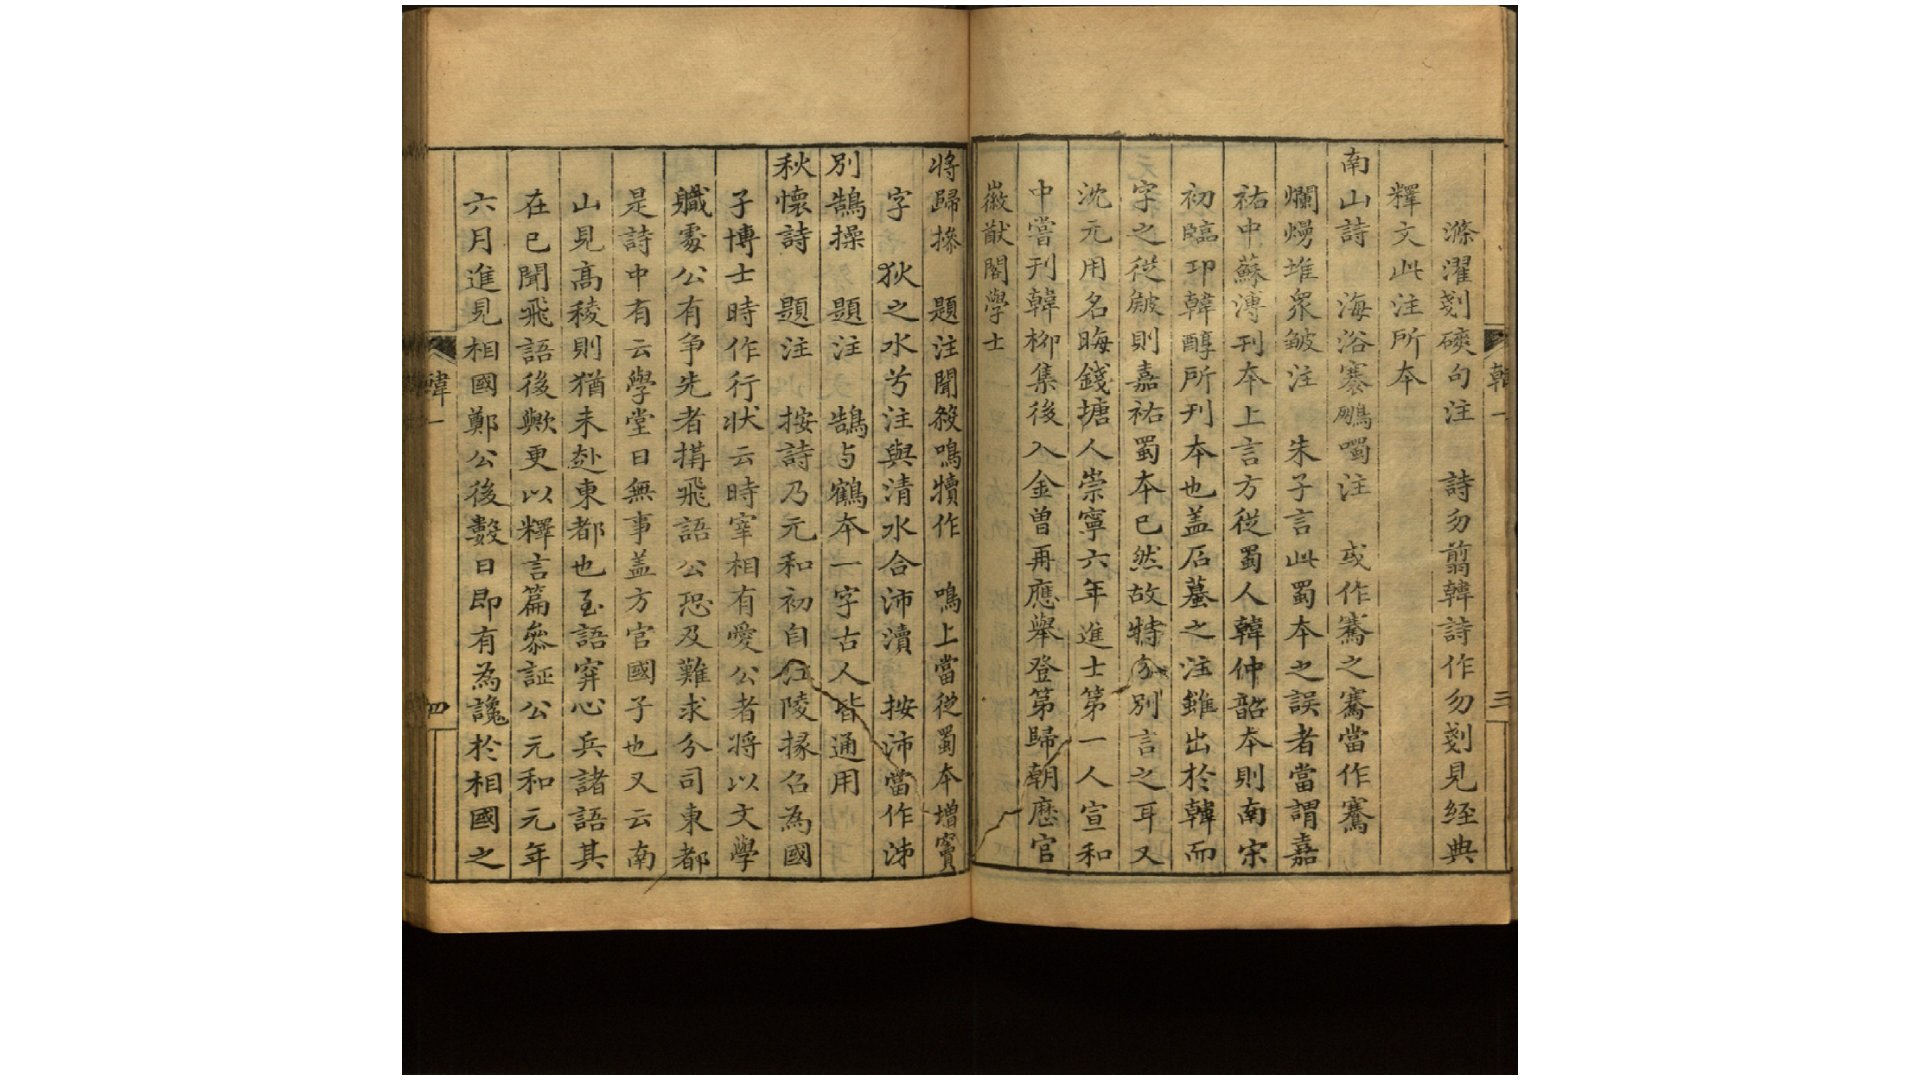 滌濯剗磢句注　詩勿翦韓詩作勿剗見經典
釋文此注所本
南山詩　海浴褰鵬噣注　或作騫之騫當作鶱
爛熳堆衆皺注　朱子言此蜀本之誤者當謂嘉
祐中蘇溥刊本上言方從蜀人韓仲韶本則南宋
初臨卭韓醇所刊本也盖石墓之注雖出於韓而
字之從皴則嘉祐蜀本已然故特分別言之耳又
沈元用名晦錢塘人崇寧六年進士第一人宣和
中嘗刊韓柳集後入金曽再應舉登第歸朝歷官
徽猷閣學士
韓一
三
將歸操　題注聞殺鳴犢作　鳴上當從蜀本增竇
字　狄之水兮注與清水合沛瀆　按沛當作泲
別鵠操　題注　鵠与鶴本一字古人皆通用
秋懷詩　題注　按詩乃元和初自江陵掾召為國
子博士時作行狀云時宰相有愛公者將以文學
職處公有争先者搆飛語公恐及難求分司東都
是詩中有云學堂日無事盖方官國子也又云南
山見高稜則猶未赴東都也至語穽心兵諸語其
在已聞飛語後歟更以釋言篇叅証公元和元年
六月進見相國鄭公後數日即有為讒於相國之
韓一
四